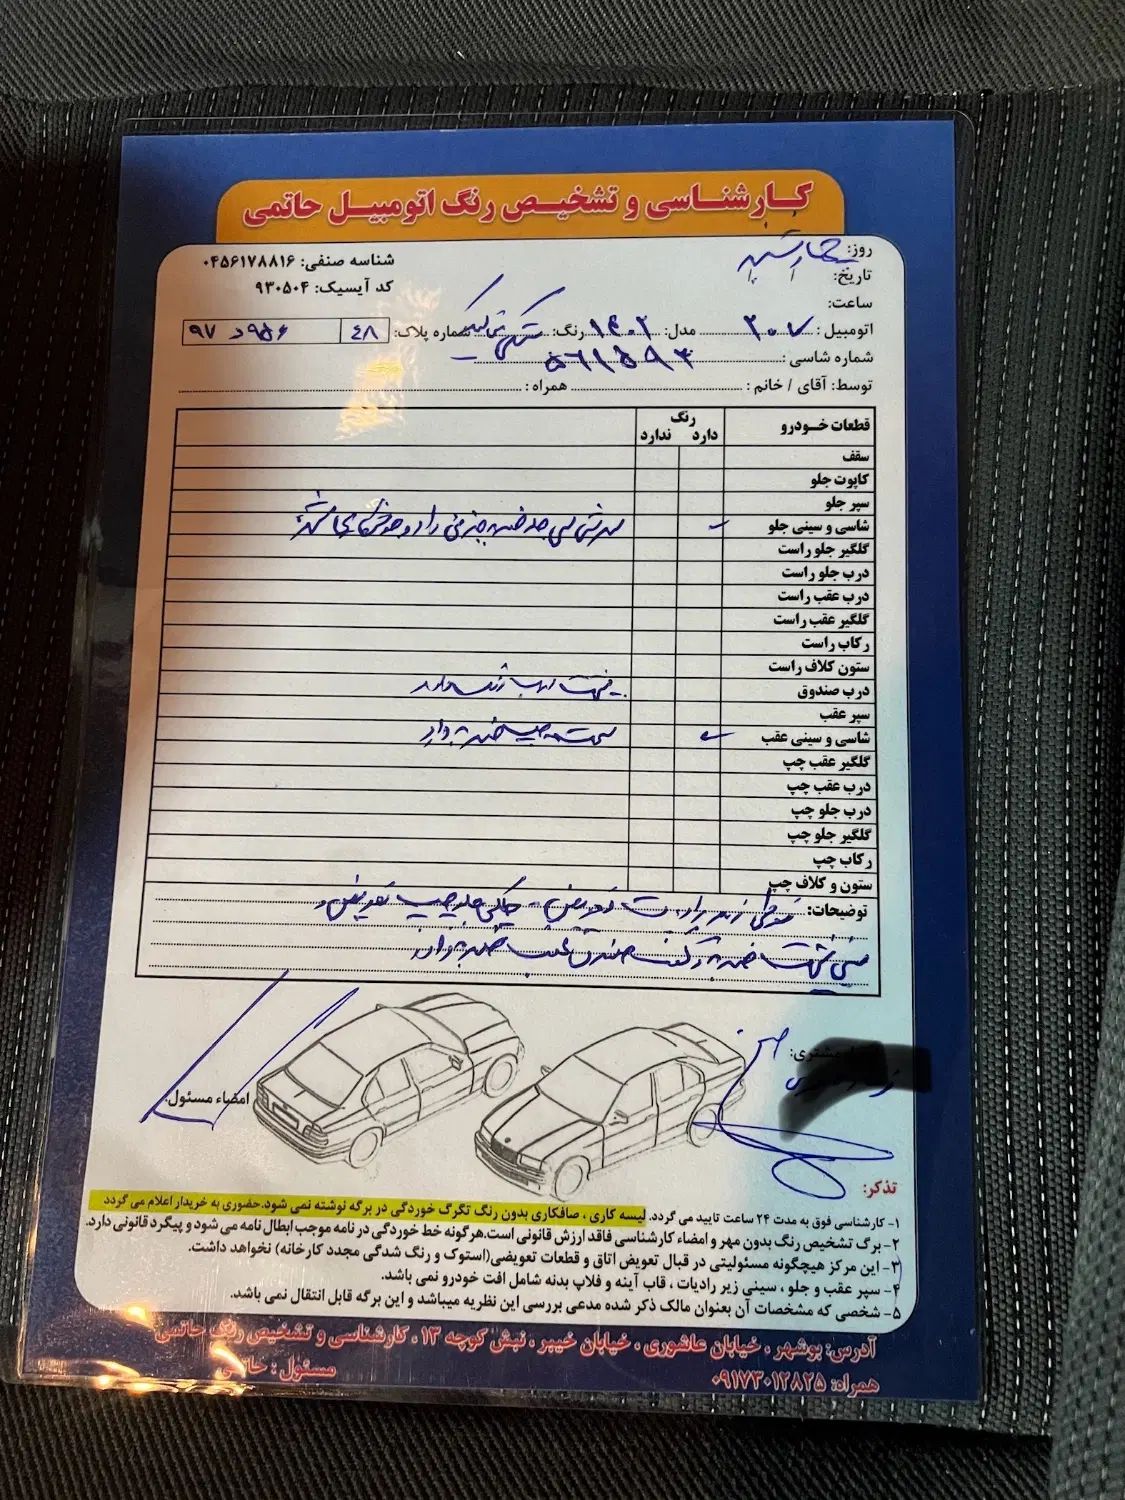 کارشناسی و تشخیص رنگ اتومبیل حاتمی
روز: چهارشنبه
شناسه صنفی: ۰۴۵۶۱۷۸۸۱۶
تاریخ:
کد آیسیک: ۹۳۰۵۰۴
ساعت:
اتومبیل: ۲۰۷ مدل: ۱۴۰۲ رنگ: شماره پلاک: ۴۸ ۹۵۶د ۹۷
شماره شاسی: ۵۶۱۵۹۳
توسط: آقای / خانم: همراه:
قطعات خودرو رنگ
دارد ندارد
سقف
کاپوت جلو
سپر جلو
شاسی و سینی جلو
گلگیر جلو راست
درب جلو راست
درب عقب راست
گلگیر عقب راست
رکاب راست
ستون کلاف راست
درب صندوق
سپر عقب
شاسی و سینی عقب ضربه دارد
گلگیر عقب چپ
درب عقب چپ
درب جلو چپ
گلگیر جلو چپ
رکاب چپ
ستون و کلاف چپ
توضیحات: تعویض
صندوق عقب ضربه دارد
مشتری:
امضاء مسئول:
تذکر:
۱- کارشناسی فوق به مدت ۲۴ ساعت تایید می گردد. لیسه کاری ، صافکاری بدون رنگ تگرگ خوردگی در برگه نوشته نمی شود.حضوری به خریدار اعلام می گردد
۲- برگ تشخیص رنگ بدون مهر و امضاء کارشناسی فاقد ارزش قانونی است.هرگونه خط خوردگی در نامه موجب ابطال نامه می شود و پیگرد قانونی دارد.
۳- این مرکز هیچگونه مسئولیتی در قبال تعویض اتاق و قطعات تعویضی(استوک و رنگ شدگی مجدد کارخانه) نخواهد داشت.
۴- سپر عقب و جلو ، سینی زیر رادیات ، قاب آینه و فلاپ بدنه شامل افت خودرو نمی باشد.
۵- شخصی که مشخصات آن بعنوان مالک ذکر شده مدعی بررسی این نظریه میباشد و این برگه قابل انتقال نمی باشد.
آدرس: بوشهر ، خیابان عاشوری ، خیابان خیبر ، نبش کوچه ۱۳ ، کارشناسی و تشخیص رنگ حاتمی
همراه: ۰۹۱۷۳۰۱۲۸۲۵ مسئول : حاتمی